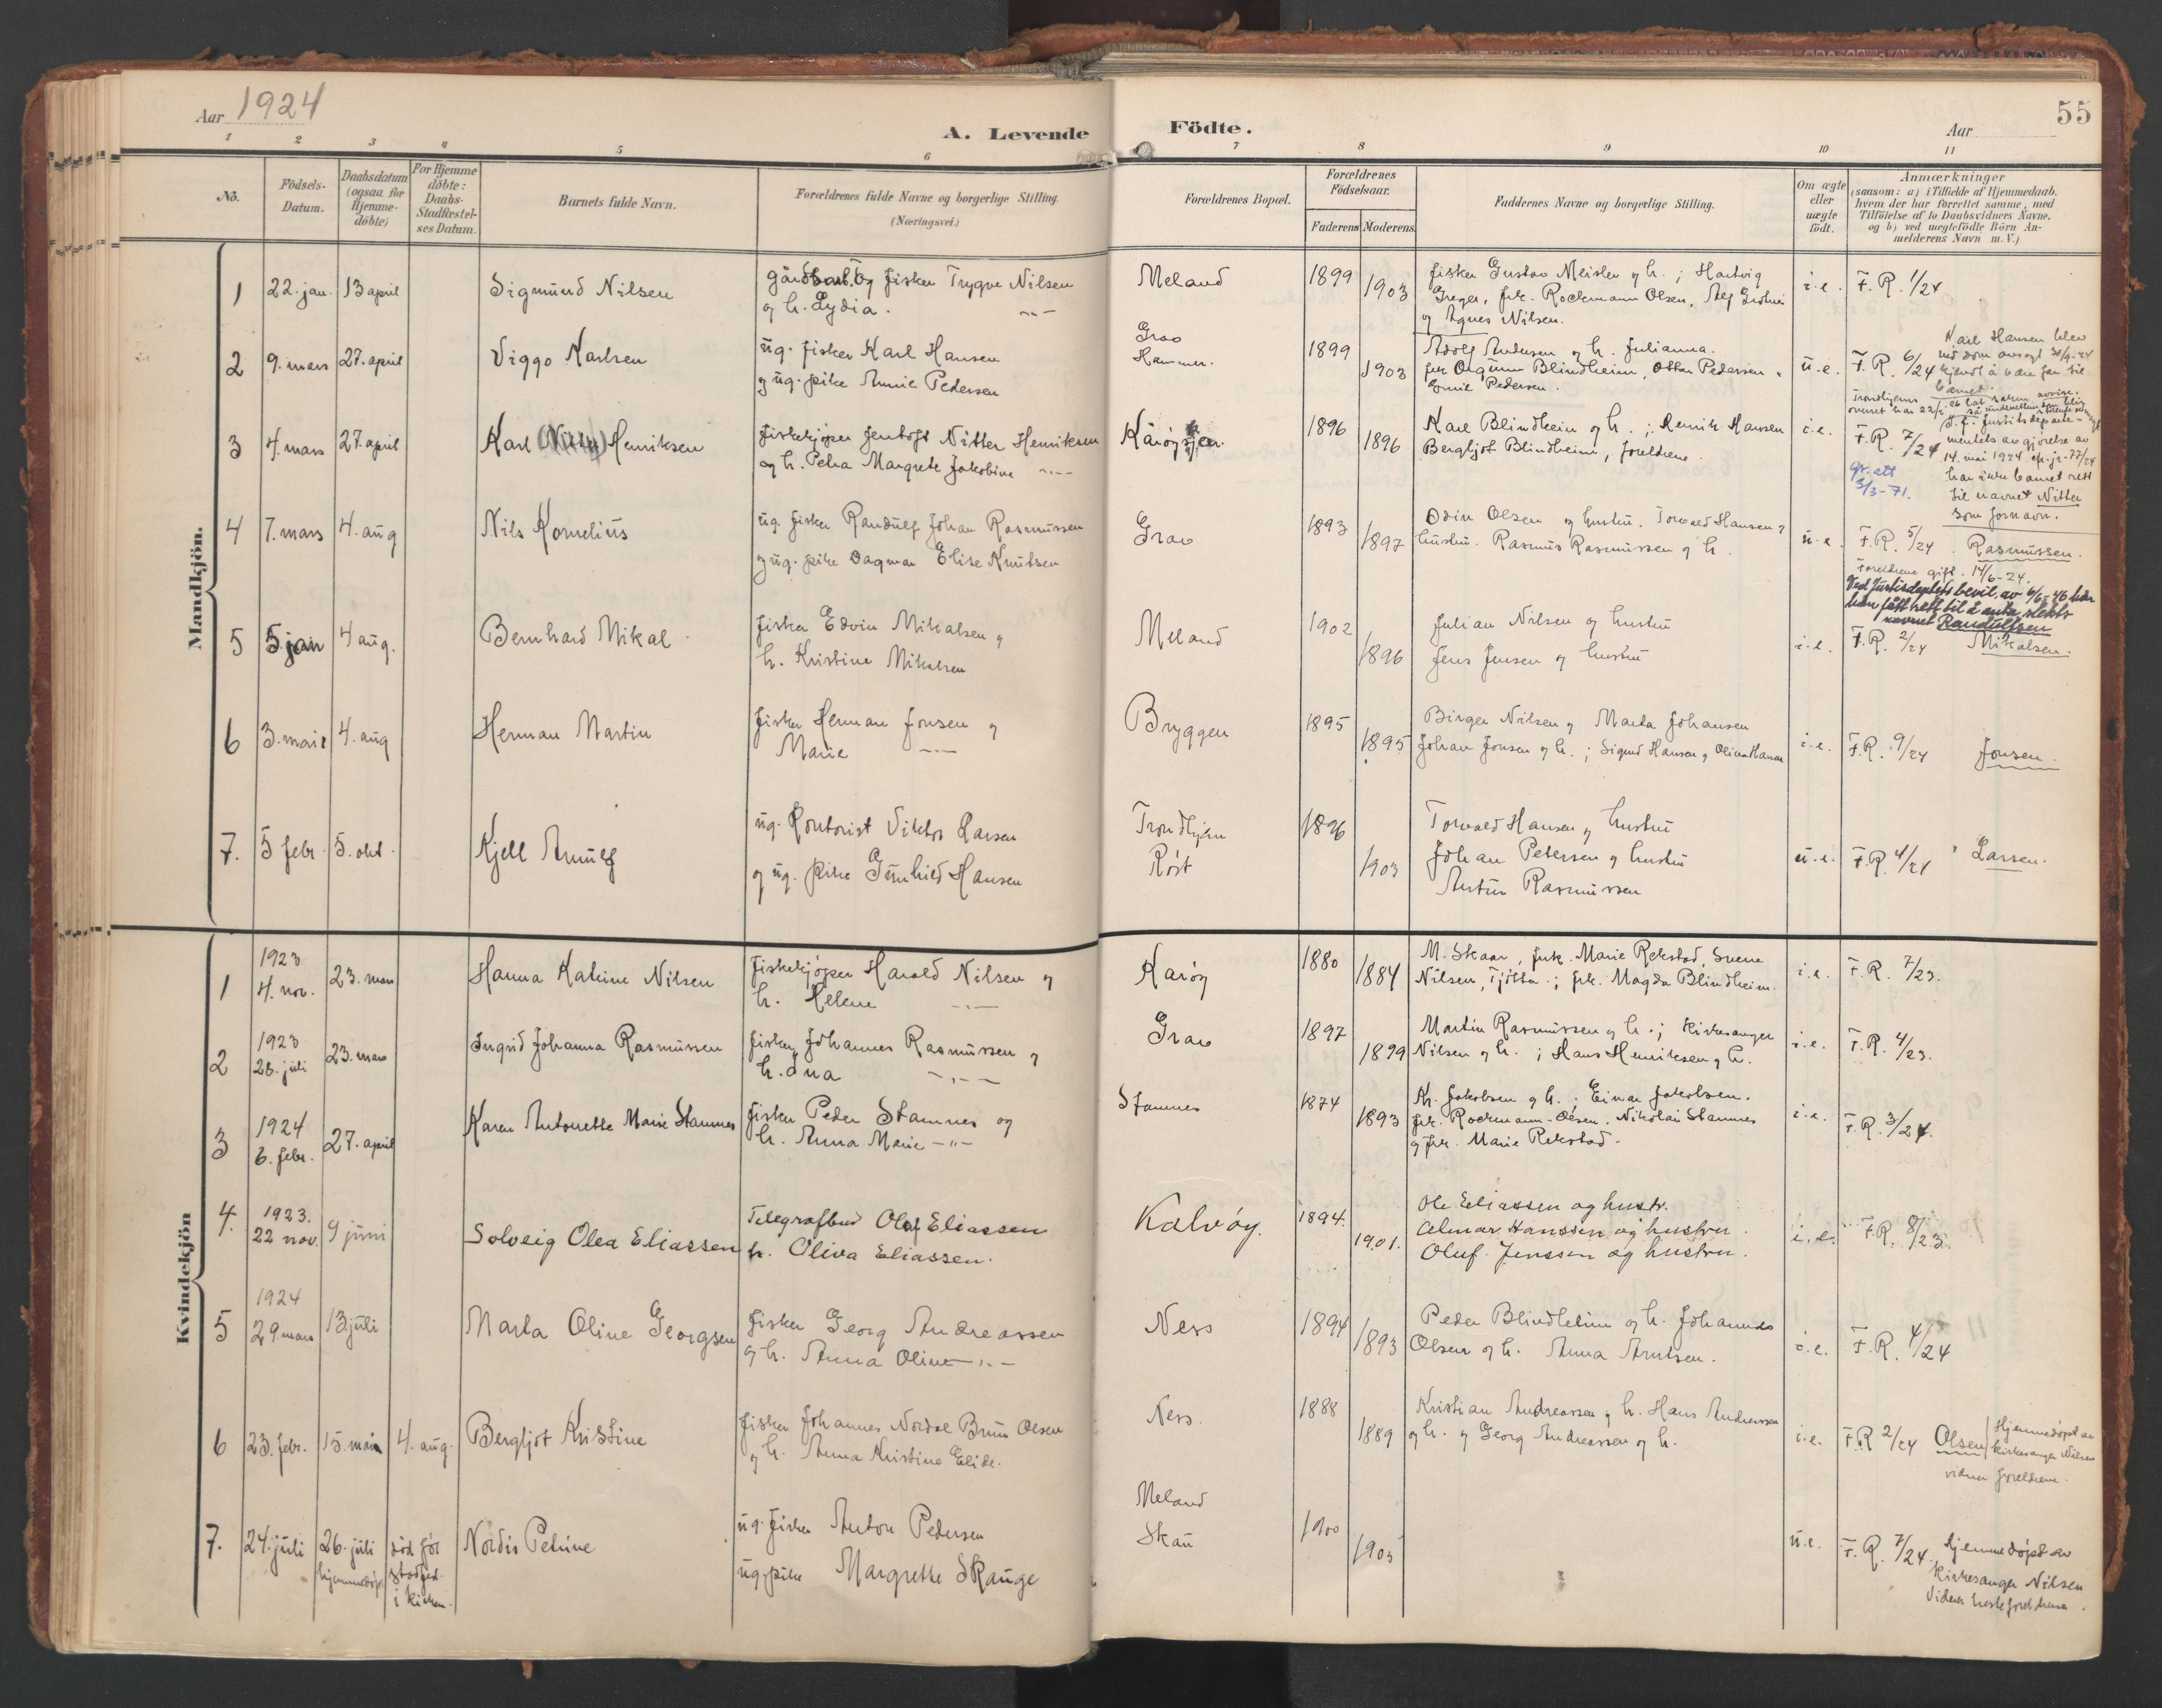 55
Aar 1924
A. Levende Födte.
Aar
1 2 3 4 5 6 7 8 9 10 11
No.
Födsels-Datum.
Daabsdatum (ogsaa for Hjemme-döbte)
For Hjemme döbte: Daabs-Stadfæstel-ses Datum.
Barnets fulde Navn.
Forældrenes fulde Navne og borgerlige Stilling. (Næringsvei.)
Forældrenes Bopæl.
Forældrenes Födselsaar.
Faderens Moderens
Faddernes Navne og borgerlige Stilling.
Om ægte eller uægte födt.
Anmærkninger
(saasom: a) i Tilfælde af Hjemmedaab.
hvem der har forrettet samme, med
Tilföielse af to Daabsvidners Navne.
og b) ved uægtefödte Börn An-
melderens Navn m. V.)
Mandkjön.
1 22. jan. 13 april Sigmund Nilsen
og fisker Trygve Nilsen
og h. Lydia. -"-
Meland 1899 1903
fisker Gustav Meisler og h. ; Hartvig
Greger, frk. Rockmann Olsen,
og Agnes Nilsen.
i.e. F. R. 1/24
2 9. mars 27. april Viggo Karlsen
ug. fisker Karl Hansen
og ug. pike Annie Pedersen
Grav
Hammer. 1899 1903
Adolf Andersen og h. Julianna.
frk Blindheim, Pedersen
Emil Pedersen.
u.e. F. R. 6/24
Karl Hansen blev
ved dom
kjendt å være far til
barnet.
3 4. mars 27. april Karl (Nitter) Henriksen
fiskekjøper Jentoft Nitter Henriksen
og h. Petra Margrete Jakobine -"-
Karøy 1896 1896
Karl Blindheim og h. ; Henrik Hansen
Bergljot Blindheim, foreldrene.
i.e. F. R. 7/24
mentets avgjørelse av
14. mai 1924
har ikke barnet rett
til navnet Nitter
som fornavn.
3/3-71.
4 7. mars 4. aug Nils Kornelius
ug. fisker Randulf Johan Rasmussen
og ug. pike Dagmar Elise Knutsen
Grav 1893 1897
Odin Olsen og hustru. Torvald Hansen og
hustru. Rasmus Rasmussen og h.
u.e. F. R. 5/24. Rasmussen.
Foreldrene gift. 14/6-24.
Ved Justisdeptets bevil. av 6/6-46 har
han fått rett til å anta slekts-
navnet Randulfsen
5 5 jan 4 aug. Bernhard Mikal
fisker Edvin Mikalsen og
h. Kristine Mikalsen
Meland 1902 1896
Julian Nilsen og hustru
Jens Jensen og hustru
i.e. F. R. 2/24 Mikalsen.
6 3. mai 4. aug Herman Martin
fisker Herman Jonsen og
Marie -"-
Bryggen 1895 1895
Birger Nilsen og Marta Johansen
Johan Jonsen og h. ; Sigurd Hansen og
i.e. F. R. 9/24 Jonsen.
7. 5 febr. 5. okt. Kjell Arnulf
ug. Kontorist Viktor Larsen
og ug. pike Gunhild Hansen
Trondhjem
Røst 1896 1903
Torvald Hansen og hustru
Johan Petersen og hustru
Artur Rasmussen
u.e. F. R. 4/24 Larsen.
Kvindekjön
1 1923
4. nov. 23. mars Hanna Katrine Nilsen
fiskekjøper Harald Nilsen og
h. Helene -"-
Karøy 1880 1884
M. Skaar, frk. Marie Rekstad, Svene
Nilsen, Tjøtta. ; frk. Magda Blindheim.
i.e. F. R. 7/23.
2 1923
26. juli 23. mars Ingrid Johanna Rasmussen
fisker Johannes Rasmussen og
h. -"-
Grav 1897 1899
Martin Rasmussen og h. ; Kirkesanger
Nilsen og h. ; Hans Henriksen og h.
i.e. F. R. 4/23.
3 1924
6. febr. 27. april Karen Antonette Marie Stamnes
fisker Peder Stamnes og
h. Anna Marie -"-
Stamnes 1874 1893
Kr. Jakobsen og h. : Einar Jakobsen.
frk. Rockmann-Olsen. Nikolai Stamnes
og frk. Marie Rekstad.
i.e. F. R. 3/24.
4. 1923.
22 nov. 9 juni Solveig Olea Eliassen
Telegrafbud Olaf Eliassen
h. Oliva Eliassen.
Kalvøy. 1894. 1901.
Ole Eliassen og hustr.
Almar Hanssen og hustru.
Oluf Jenssen og hustru.
i.e. F. R. 8/23.
5 1924
29. mars 13 juli Marta Oline Georgsen
fisker Georg Andreassen
og h. Anna Oline -"-
Ness 1894 1893
Peder Blindheim og h. Johannes
Olsen og h. Anna Arntsen.
i.e. F. R. 4/24
6 23. febr. 15. mai 4. aug. Bergljot Kristine
fisker Johannes Nordal Brun Olsen
og h. Anna Kristine Elide.
Ness. 1888 1889
Kristian Andreassen og h. Hans Andreassen
og h. og Georg Andreassen og h.
i.e. F. R 2/24 Olsen
Hjemmedøpt av
kirkesanger Nilsen
vidner foreldrene.
7. 24. juli 26. juli
hjemmedøpt
død før
stadfest.
i kirken.
Nordis Petrine
ug. fisker Anton Pedersen
ug. pike Margrethe Skauge
Meland
Skau 1900 1905
u.e. F. R. 7/24.
hjemmedøpt av
Kirkesanger Nilsen